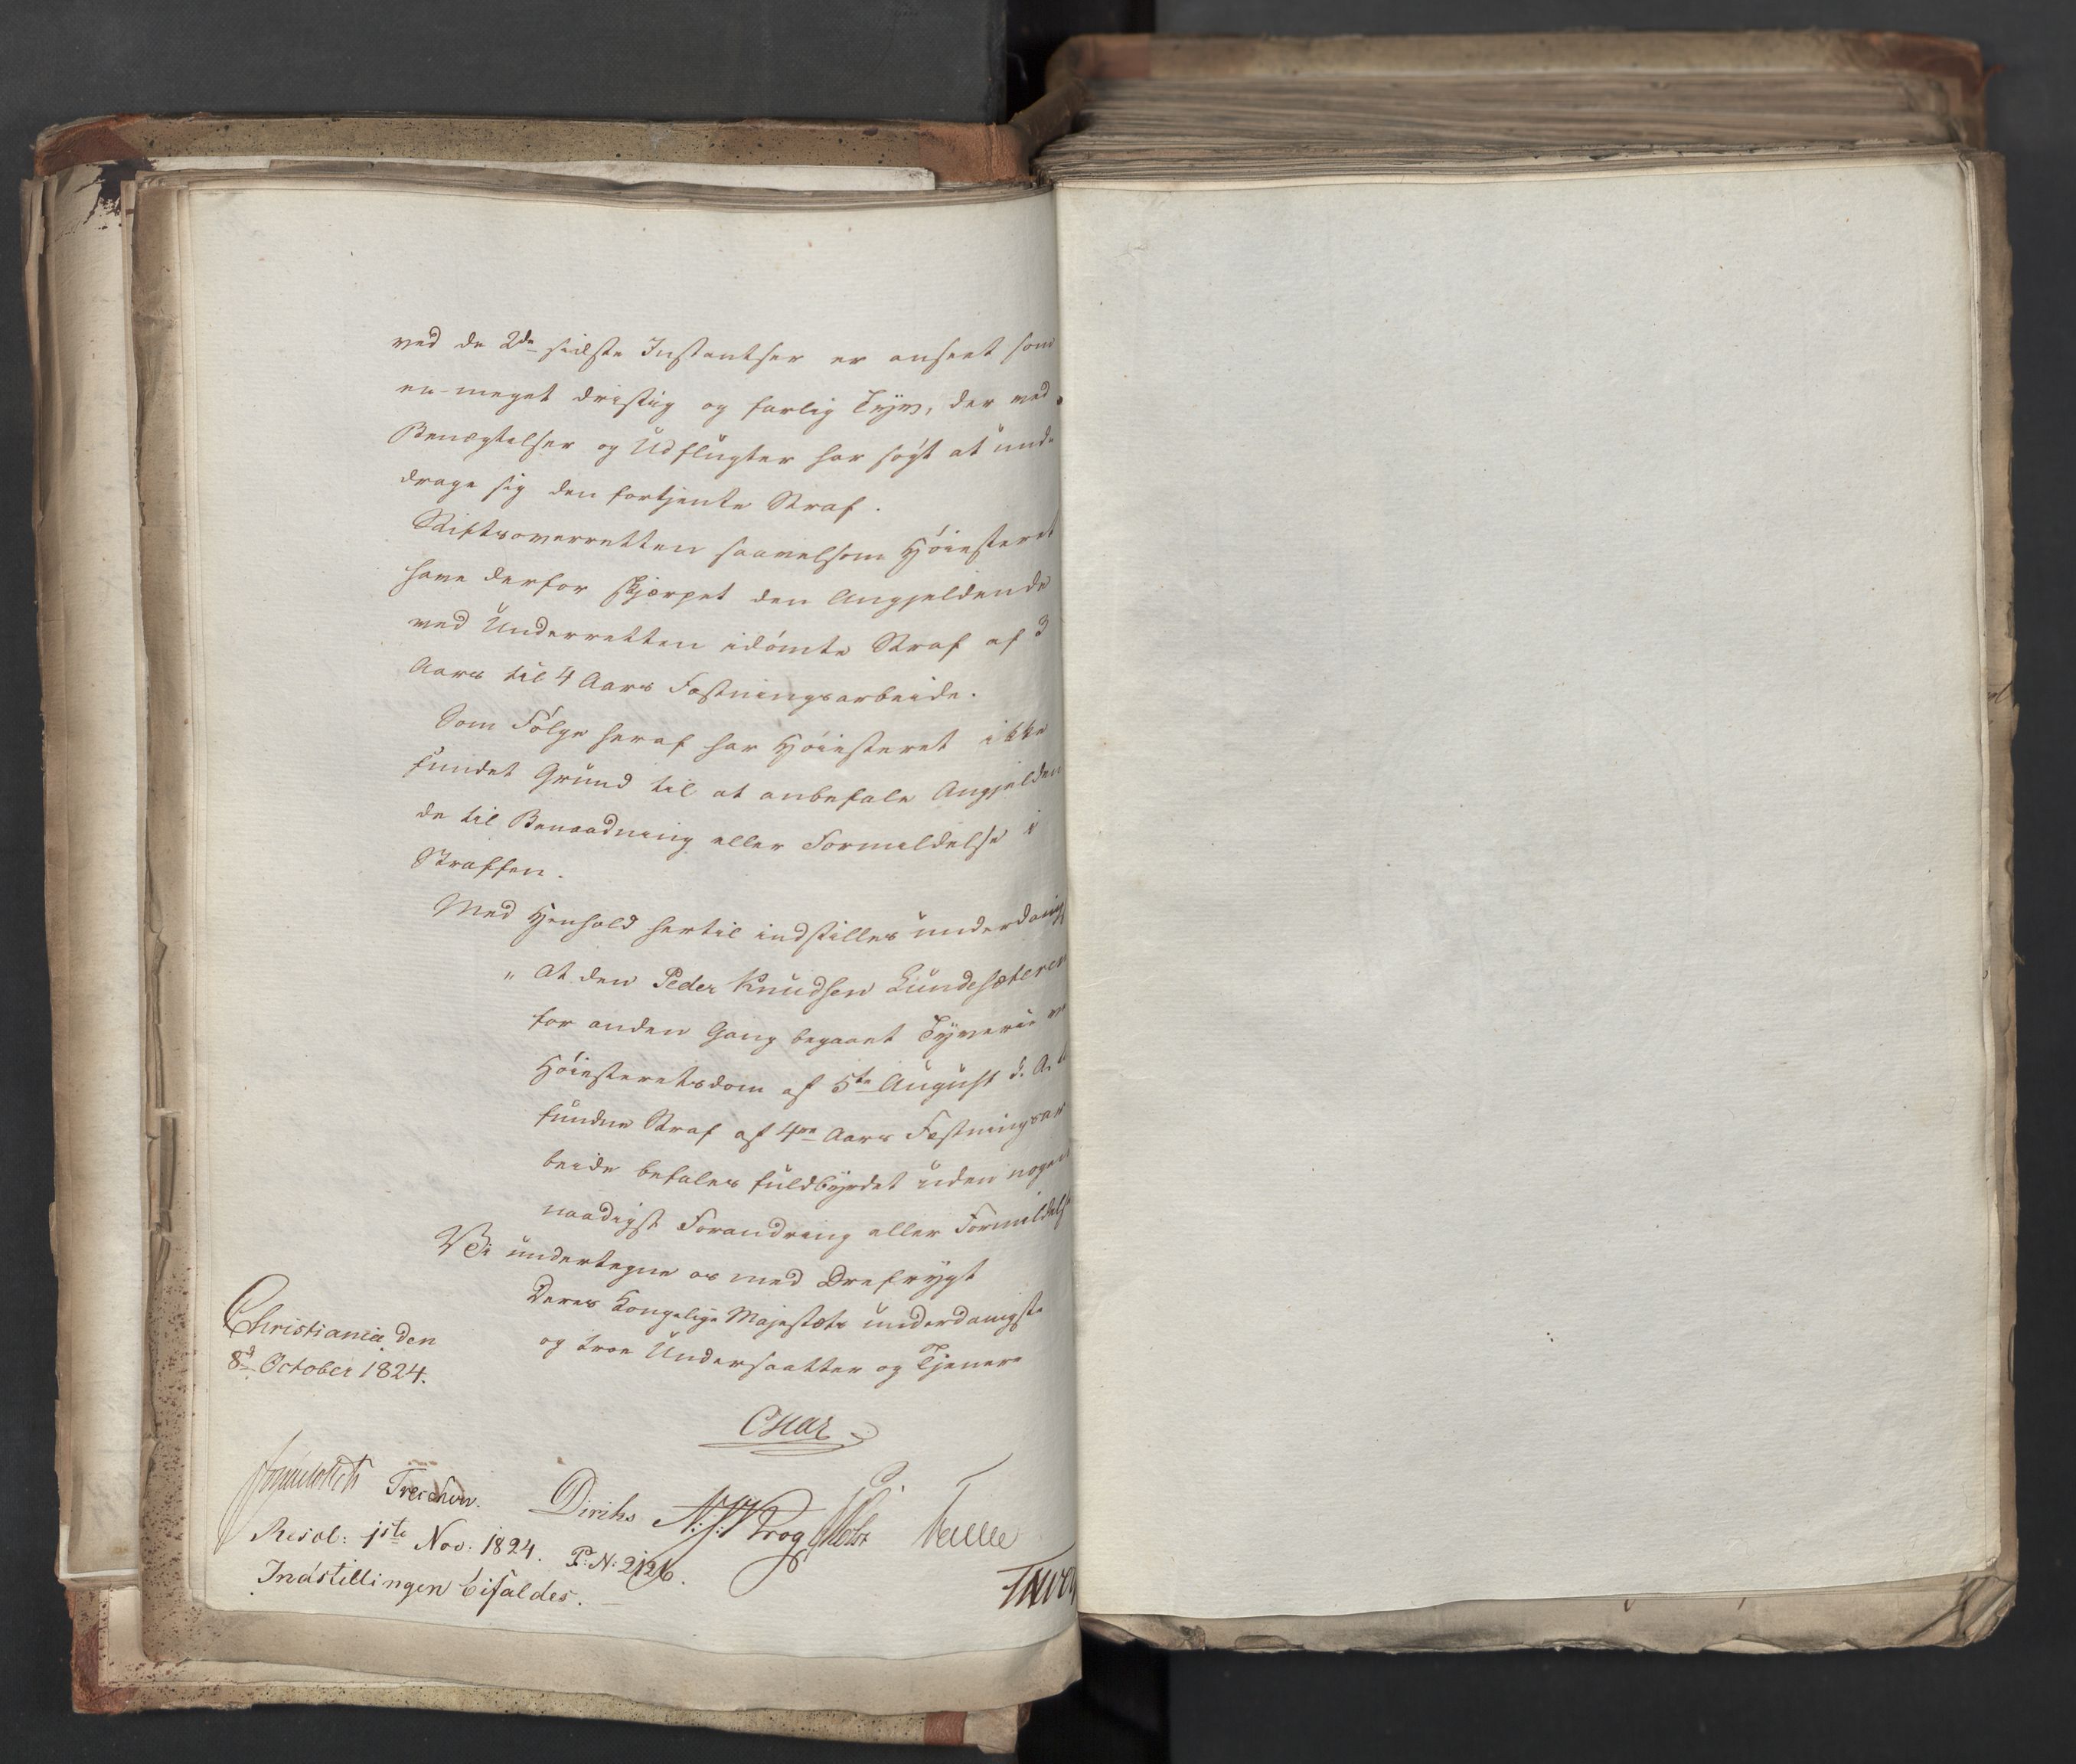 ved de 2de sidste Instantser er anseet som
en meget dristig og farlig Tyv, der ved
Benægtelser og Udflugter har søgt at und
drage sig den fortjente Straf.
Stiftsoverretten saavelsom Høiesteret
have derfor skjærpet den Angjeldende
ved Underretten idømte Straf af 3
Aars til 4 Aars Fæstningsarbeide.
Som Følge heraf har Høiesteret ikke
fundet Grund til at anbefale Angjelden
de til Benaadning eller Formildelse i
Straffen.
Med Henhold hertil indstilles underdanigst
„ At den Peder Knudsen Lundesæteren
for anden Gang begaaet Tyverie ve
Høiesteretsdom af 5te August d. A.
fundne Straf af 4re Aars Fæstningsar
beide befales fuldbyrdet uden nogen
naadigst Forandring eller Formildelse
Vi undertegne os med Ærefrygt
Deres Kongelige Majestæts underdanigste
og troe Undersaatter og Tjenere
Christiania den
8d October 1824.
Treschow. Diriks
Resol: 1ste Nov: 1824. P: N: 2126.
Indstillingen bifaldes.